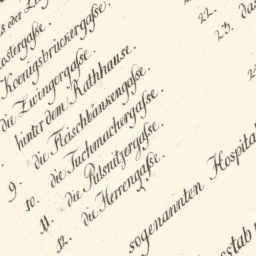 Koenigsbrückergaſse.
die Zwingergaſse.
hinter dem Rathhause.
9. die Fleischbänkengaſse.
10. die Tuchmachergaſse.
11. die Pulsnitzergaſse.
12. die Herrengaſse.
22.
23. das
sogenannten Hospital